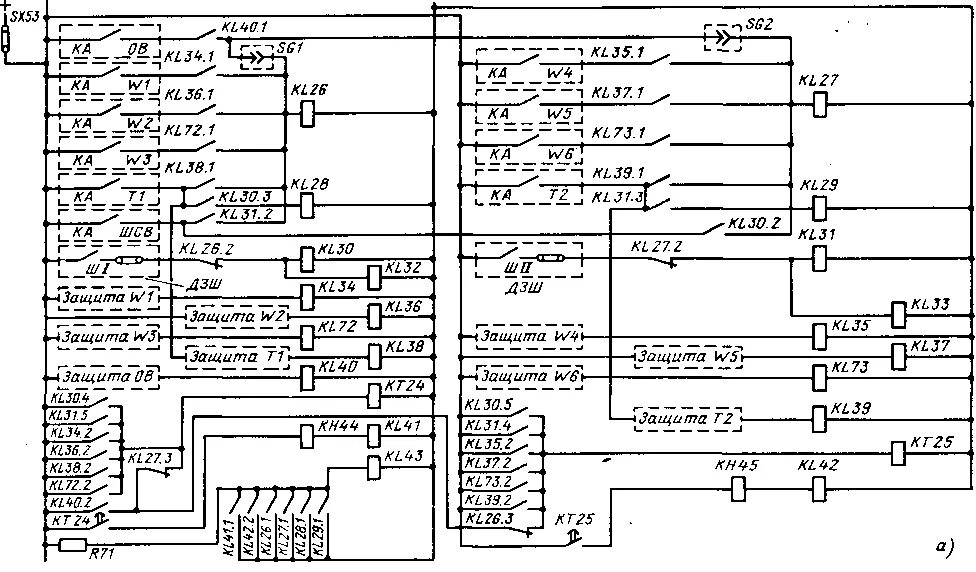 +
SX53
КА ОВ
KL40.1
SG1
KL34.1
КА W1
KL36.1
KL26
КА W2
KL72.1
КА W3
KL38.1
КА Т1
KL30.3
KL28
KL31.2
КА ШСВ
KL26.2
KL30
ШI
ДЗШ
KL32
Защита W1
KL34
Защита W2
KL36
Защита W3
KL72
Защита Т1
KL38
Защита ОВ
KL40
KT24
KL30.4
KL31.5
KL34.2
KL36.2
KL38.2
KL72.2
KL40.2
KT24
KL27.3
KH44
KL41
KL43
R71
KL41.1
KL42.2
KL26.1
KL27.1
KL28.1
KL29.1
SG2
KL35.1
КА W4
KL37.1
KL27
КА W5
KL73.1
КА W6
KL39.1
КА Т2
KL31.3
KL29
KL30.2
KL31
KL27.2
ШII
ДЗШ
KL33
Защита W4
KL35
Защита W5
KL37
Защита W6
KL73
Защита Т2
KL39
KL30.5
KL31.4
KL35.2
KL37.2
KL73.2
KL39.2
KL26.3
KT25
KT25
KH45
KL42
а)